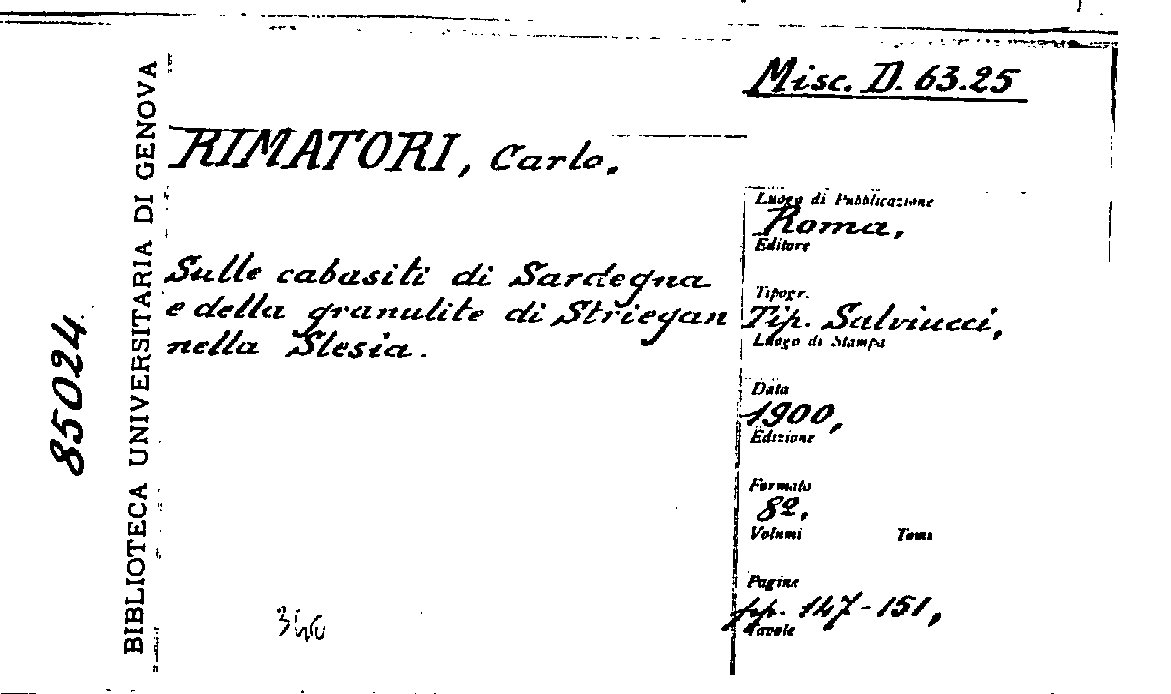 Misc. D. 63.25
RIMATORI, Carlo.
Sulle cabasiti di Sardegna
e della granulite di Striegan
nella Slesia.
Luogo di Pubblicazione
Roma,
Editore
Tipogr.
Tip. Salviucci,
Luogo di Stampa
Data
1900,
Edizione
Formato
8º,
Volumi Tomi
Pagine
pp. 147-151,
Tavole
BIBLIOTECA UNIVERSITARIA DI GENOVA
85024